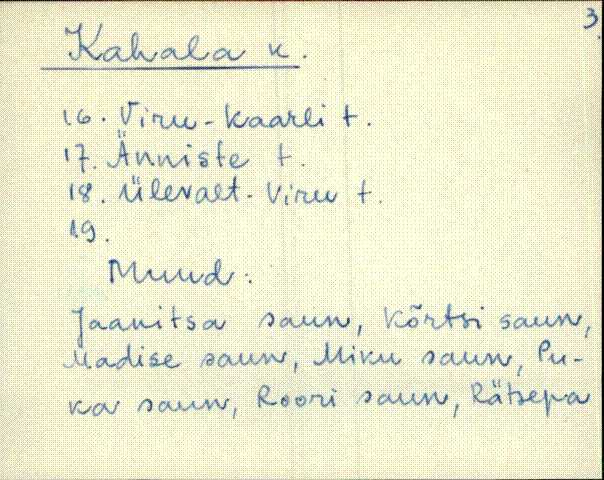 3.
Kahala k.
16. Viru-Kaarli t.
17. Änniste t.
18. Ülevalt-Viru t.
19.
Muud:
Jaanitsa saun, Kõrtsi saun,
Madise saun, Miku saun, Pu-
ka saun, Roori saun, Rätsepa